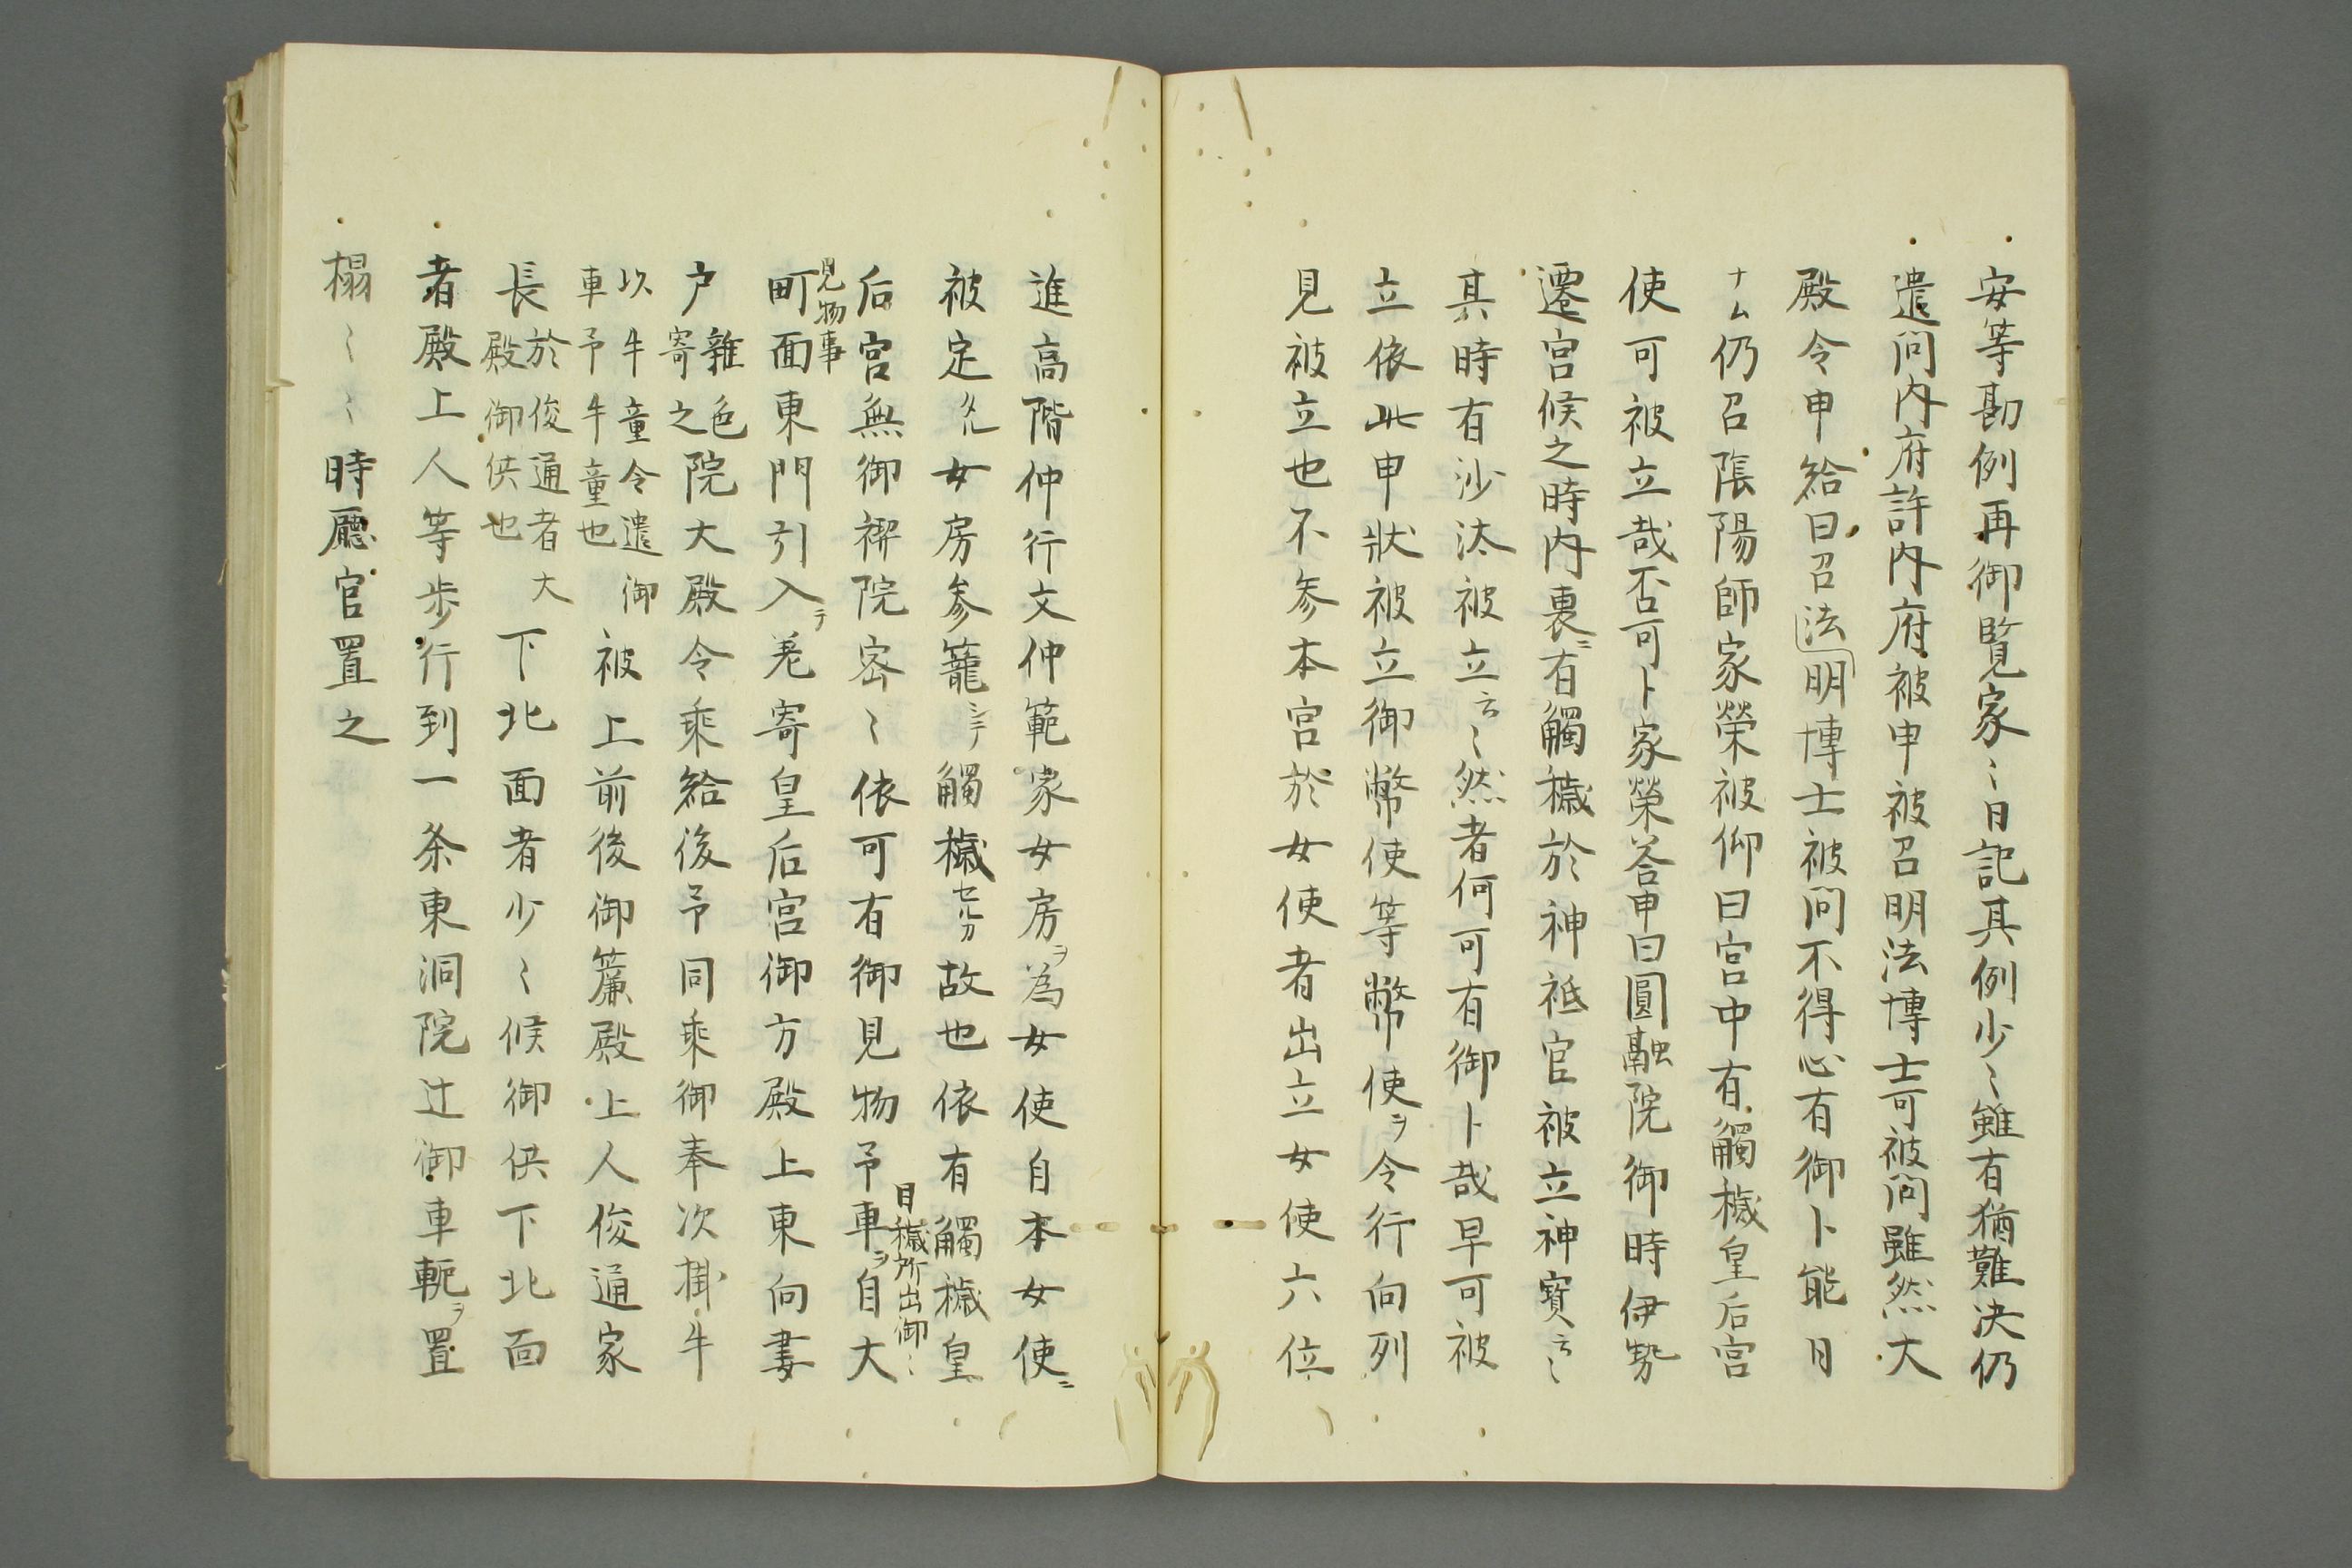 安等勘例再御覧家〻日記其例少〻雖有猶難決仍
遣問内府許内府被申被召明法博士可被問雖然大
殿令申給曰召法明博士被問不得心有御卜能日
ナム仍召陰陽師家榮被仰曰宮中有觸穢皇后宮
使可被立哉否可卜家榮答申曰圓融院御時伊勢
遷宮候之時内裏ニ有觸穢於神祇官被立神寳云〻
其時有沙汰被立云〻然者何可有御卜哉早可被
立依此申状被立御幣使等幣使ヲ令行向列
見被立也不参本宮於女使者出立女使六位
進高階仲行文仲範家女房ヲ為女使自本女使ニ
被定タル女房参籠シテ觸穢セルカ故也依有觸穢皇
自穢所出御〻
后宮無御禊院宻〻依可有御見物予車ヲ自大
見物事
町面東門引入テ差寄皇后宮御方殿上東向妻
戸雜色寄之院大殿令乘給後予同乘御奉次掛牛
以牛童令遣御車予牛童也被上前後御簾殿上人俊通家
長於俊通者大殿御供也下北面者少〻候御供下北面
者殿上人等歩行到一条東洞院辻御車軛ヲ置
榻〻〻時廳官置之